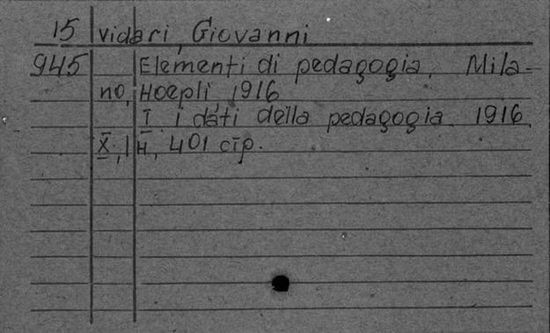 15 vidari, Giovanni
945 Elementi di pedagogia. Mila-
no, Hoepli, 1916
I. i dati della pedagogia. 1916.
X, 1 н, 401 стр.